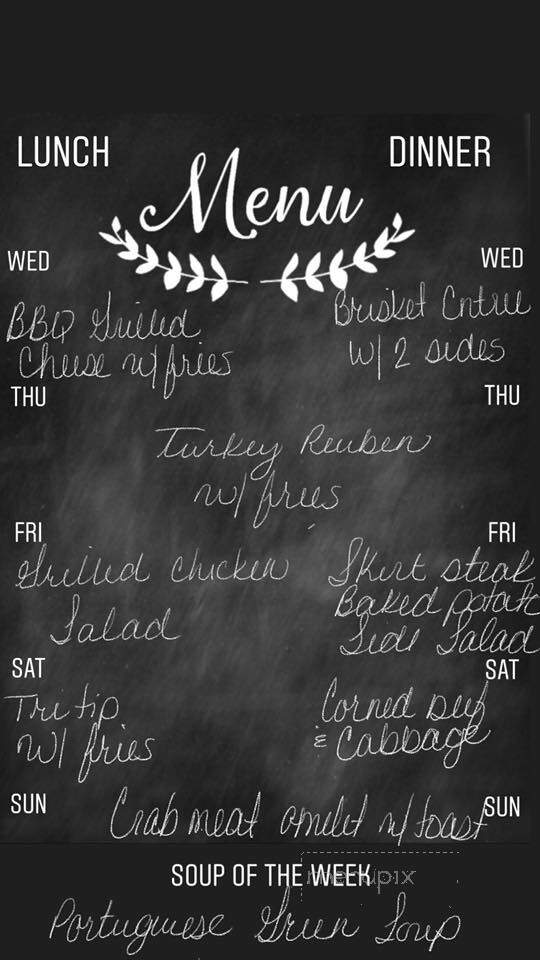 LUNCH
DINNER
Menu
WED
WED
BBQ Grilled
Cheese w/fries
Brisket Entree
w/ 2 sides
THU
THU
Turkey Reuben
w/ fries
FRI
FRI
Grilled chicken
Salad
Skirt steak
Baked potato
Side Salad
SAT
SAT
Tri tip
w/ fries
Corned Beef
& Cabbage
SUN
Crab meat omelet w/ toast
SUN
SOUP OF THE WEEK
menupix
Portuguese Green Soup